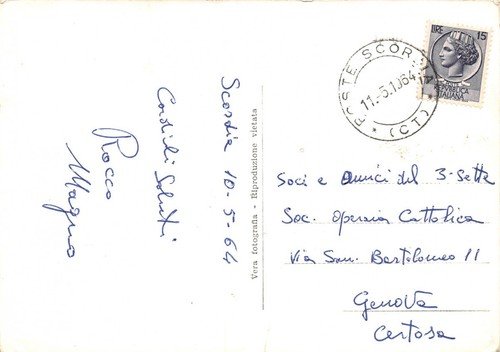 Scordia 10-5-64
Cordiali Saluti
Rocco
Magno
Vera fotografia - Riproduzione vietata
POSTE SCORDIA
11.5.1964
* (CT) *
LIRE 15
REPUBBLICA
ITALIANA
Soci e amici del 3-Sette
Soc. Operaia Cattolica
Via San Bartolomeo 11
Genova
Certosa